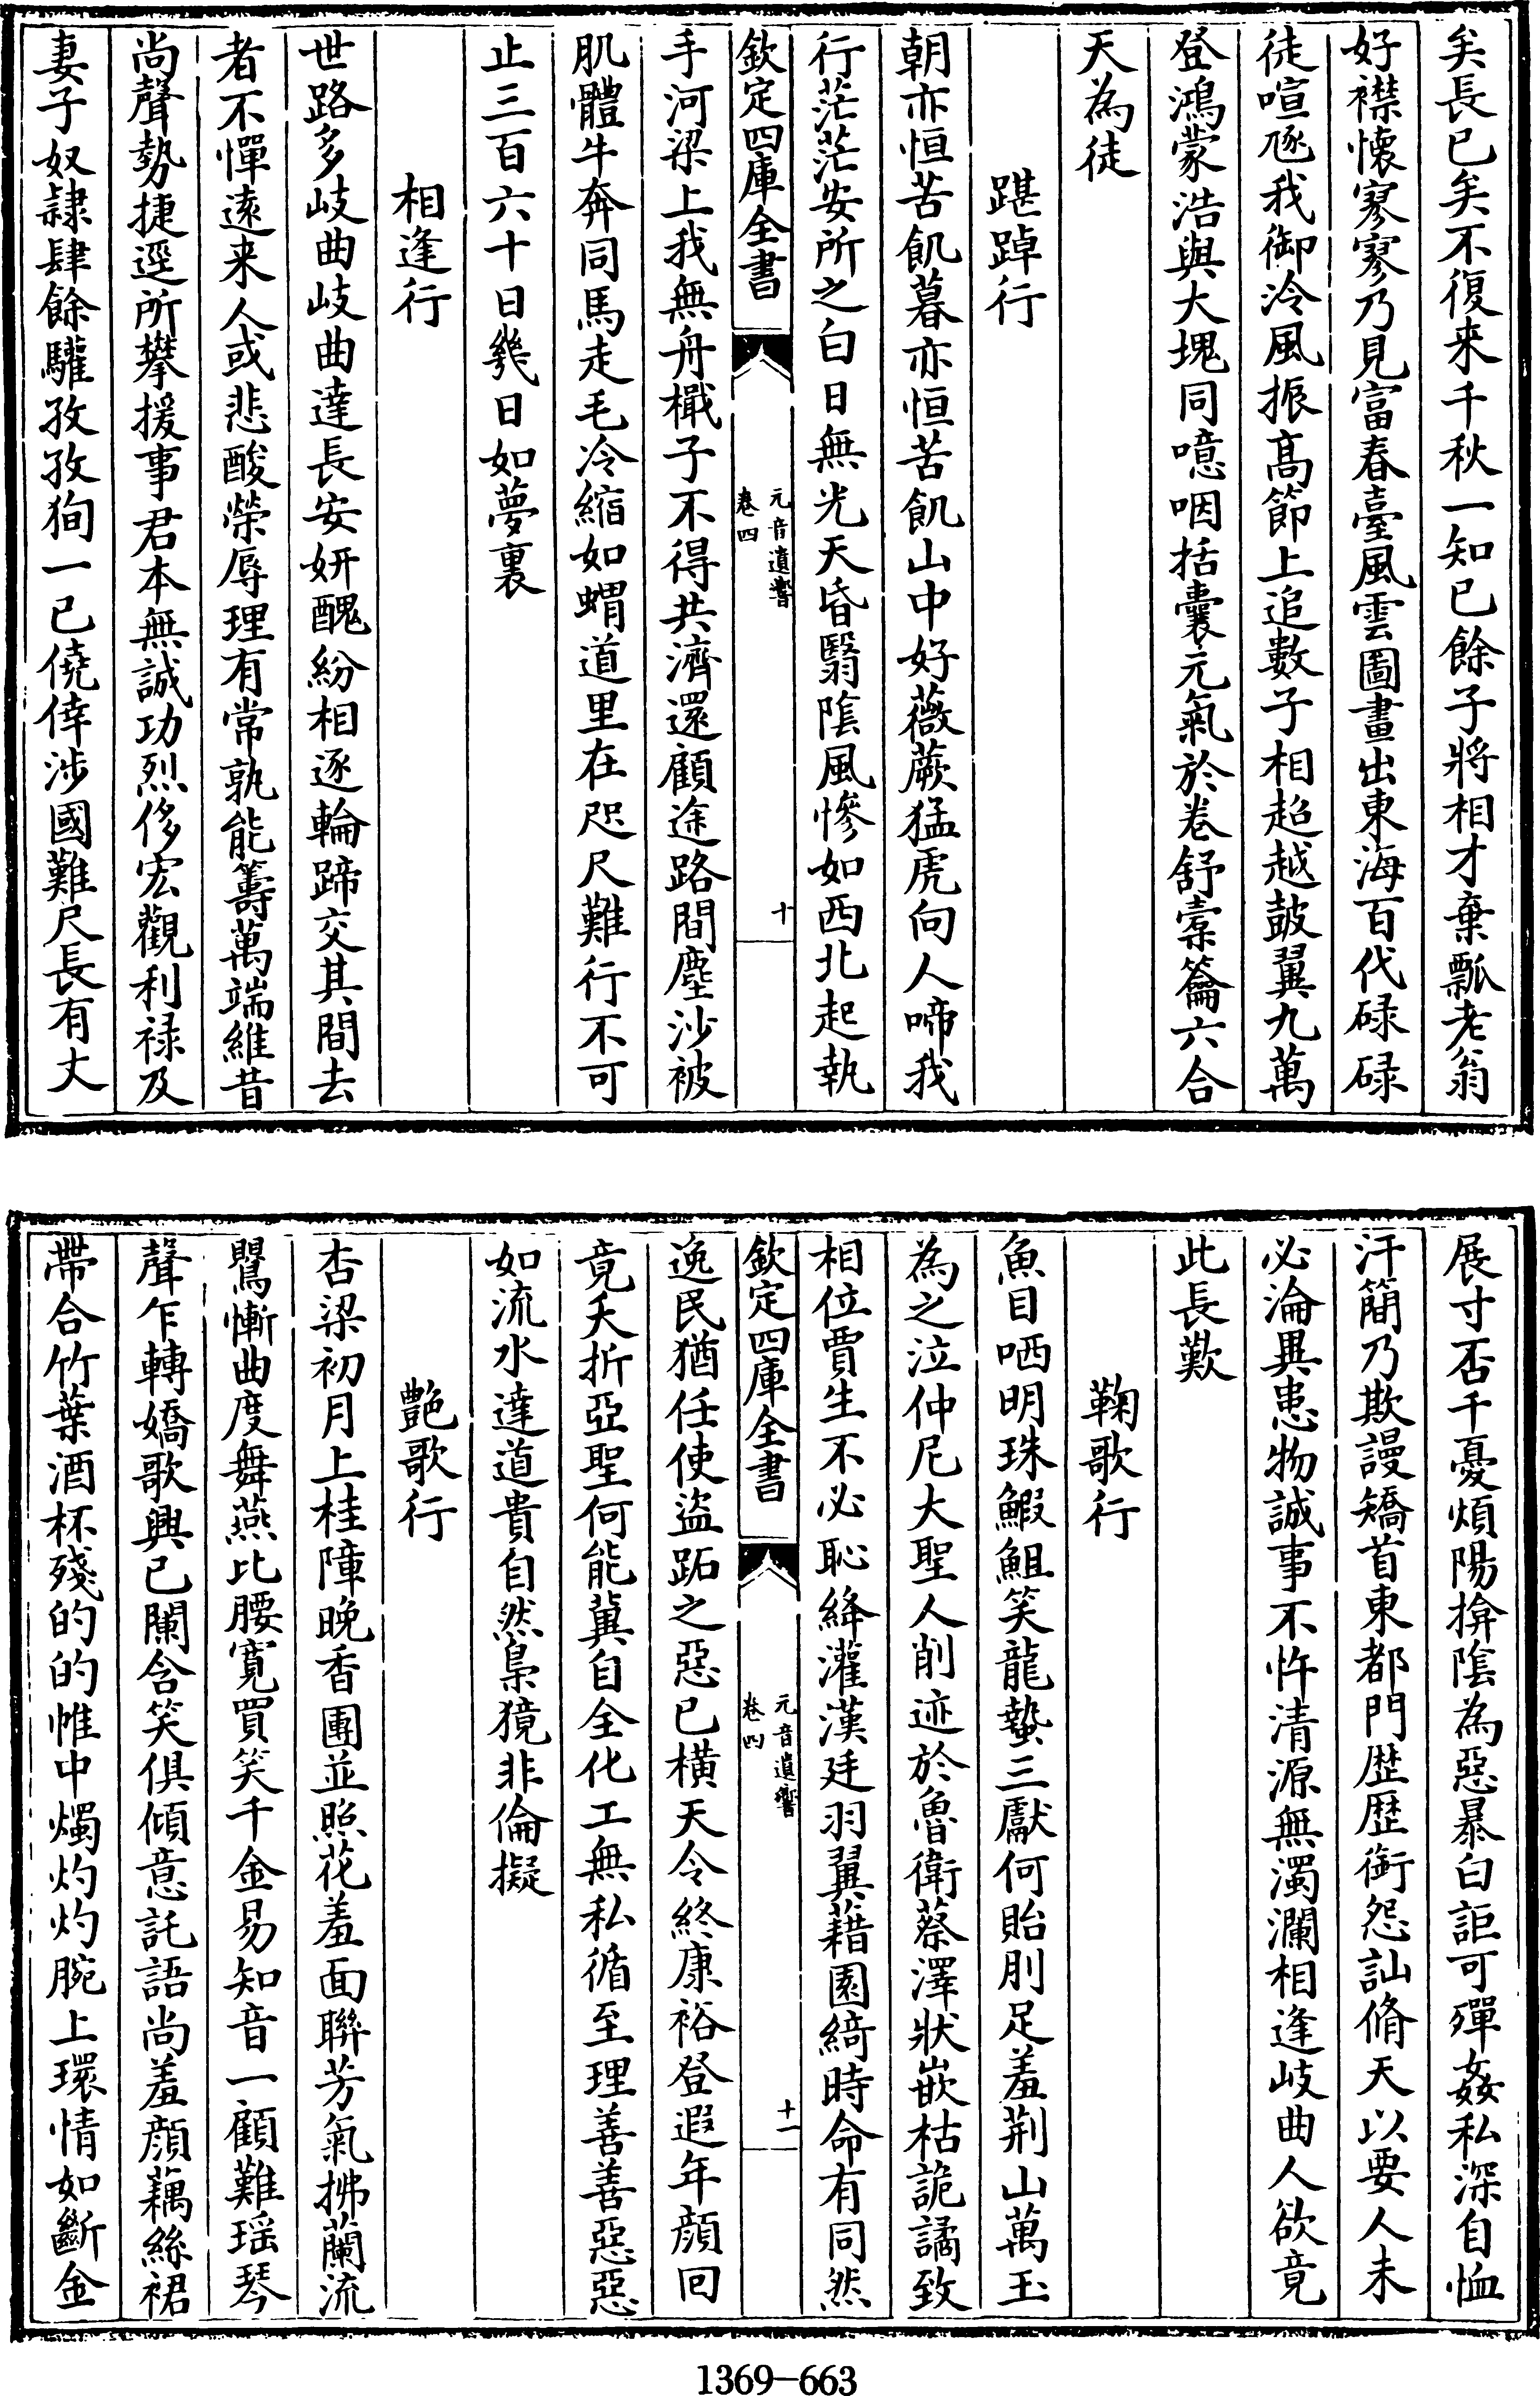 矣長已矣不復来千秋一知已餘子將相才棄瓢老翁
好襟懐寥寥乃見富春臺風雲圖畫出東海百代碌碌
徒喧豗我御泠風振髙節上追數子相超越鼓翼九萬
登鴻蒙浩與大塊同噫咽括囊元氣於卷舒橐籥六合
天為徒
踸踔行
朝亦恒苦飢暮亦恒苦飢山中好薇蕨猛虎向人啼我
行茫茫安所之白日無光天昏翳隂風慘如西北起執
欽定四庫全書
元音遺響
卷四
十
手河梁上我無舟檝子不得共濟還顧途路間塵沙被
肌體牛奔同馬走毛冷縮如蝟道里在咫尺難行不可
止三百六十日幾日如夢裏
相逢行
世路多岐曲岐曲達長安妍醜紛相逐輪蹄交其間去
者不憚逺来人或悲酸榮辱理有常孰能籌萬端維昔
尚聲勢捷逕所攀援事君本無誠功烈侈宏觀利禄及
妻子奴隷肆餘驩孜孜狥一已僥倖涉國難尺長有丈
展寸否千憂煩陽揜隂為惡暴白詎可殫姦私深自恤
汗簡乃欺謾矯首東都門歴歴銜怨訕脩天以要人未
必淪異患物誠事不忤清源無濁瀾相逢岐曲人欲竟
此長歎
鞠歌行
魚目哂明珠鰕䱉笑龍蟄三獻何貽刖足羞荆山萬玉
為之泣仲尼大聖人削迹於魯衛蔡澤狀嶔枯詭譎致
相位賈生不必恥絳灌漢廷羽翼藉園綺時命有同然
欽定四庫全書
元音遺響
卷四
十一
逸民猶任使盜跖之惡已横天令終康裕登遐年顔回
竟夭折亞聖何能冀自全化工無私循至理善善惡惡
如流水達道貴自然梟獍非倫擬
艶歌行
杏梁初月上桂障晚香團並照花羞面聯芳氣拂蘭流
鸎慚曲度舞燕比腰寛買笑千金易知音一顧難瑶琴
聲乍轉嬌歌興已闌含笑俱傾意託語尚羞顔藕絲裙
帶合竹葉酒杯殘的的帷中燭灼灼腕上環情如斷金
1369-663